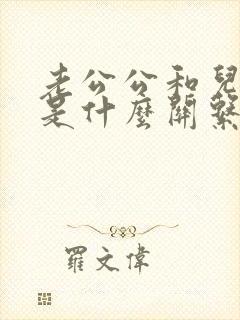 老公公和兒
是什麼關繫
羅文偉